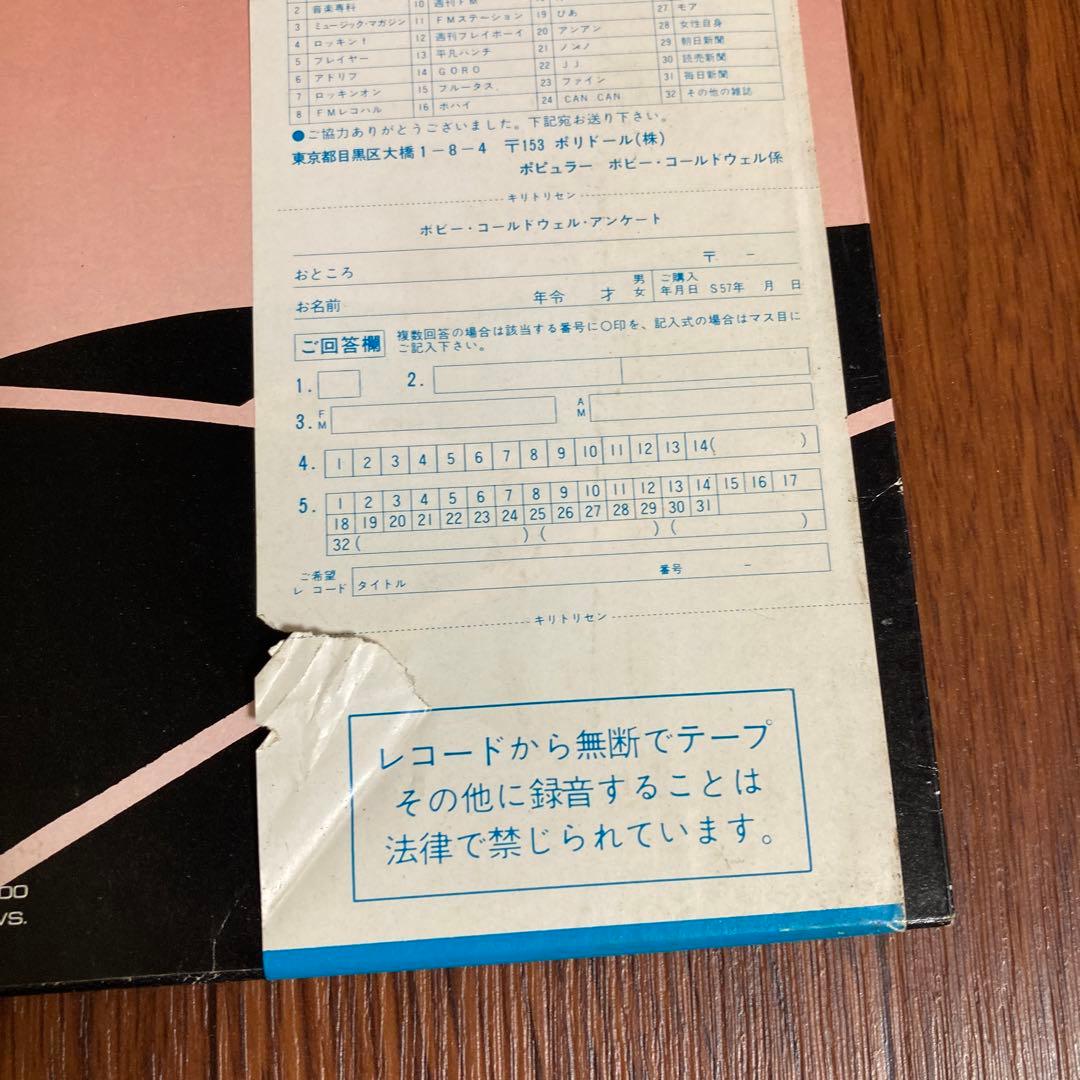 2 音楽専科 10 週刊FM 27 モア
3 ミュージック・マガジン 11 FMステーション 19 ぴあ 28 女性自身
4 ロッキンf 12 週刊プレイボーイ 20 アンアン 29 朝日新聞
5 プレイヤー 13 平凡パンチ 21 ノンノ 30 読売新聞
6 アドリブ 14 GORO 22 JJ 31 毎日新聞
7 ロッキンオン 15 ブルータス 23 ファイン 32 その他の雑誌
8 FMレコパル 16 ポパイ 24 CAN CAN
●ご協力ありがとうございました。下記宛お送り下さい。
東京都目黒区大橋1-8-4 〒153 ポリドール(株)
ポピュラー ボビー・コールドウェル係
キリトリセン
ボビー・コールドウェル・アンケート
おところ 〒 -
お名前 年令 才 男 女 ご購入年月日 S57年 月 日
ご回答欄 複数回答の場合は該当する番号に○印を、記入式の場合はマス目に
ご記入下さい。
1. 2.
3. FM AM
4. 1 2 3 4 5 6 7 8 9 10 11 12 13 14( )
5. 1 2 3 4 5 6 7 8 9 10 11 12 13 14 15 16 17
18 19 20 21 22 23 24 25 26 27 28 29 30 31
32( ) ( ) ( )
ご希望レコード タイトル 番号 -
キリトリセン
レコードから無断でテープ
その他に録音することは
法律で禁じられています。